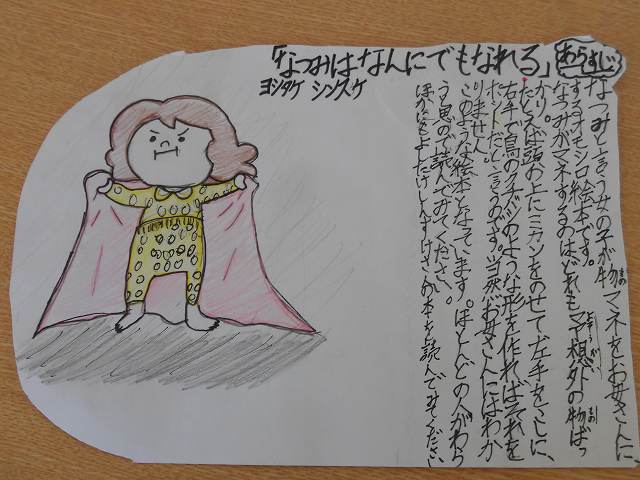 「なつみはなんにでもなれる」
ヨシタケ シンスケ
あらすじ
なつみと言う女の子が物マネをお母さんに、
するオモシロ絵本です。
なつみがマネするのはどれも予想外の物ばっ
かり。
たとえば頭の上にミカンをのせて左手をこしに、
右手で鳥のクチバシのような形を作ればそれを
ポットだと言うのです。当然お母さんにはわか
りません。
このような絵本となっています。ほとんどの人がわらうと
思うので読んでみてください。
ほかにもよしたけしんすけさんの本を読んでみてください